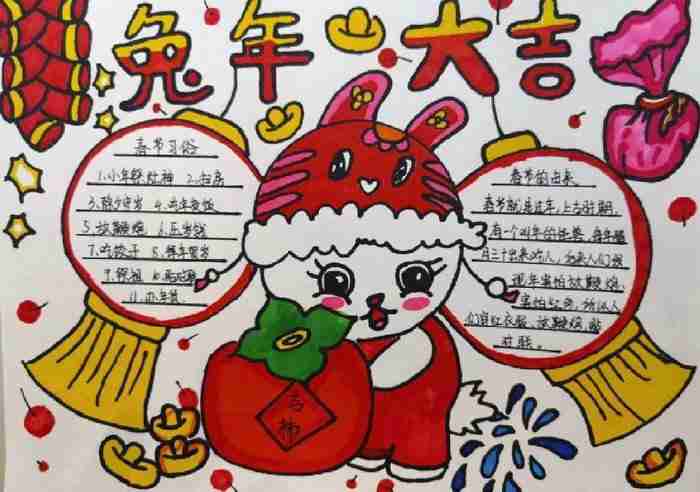 兔年大吉
春节习俗
1.小年祭灶神 2.扫房
3.除夕守岁 4.吃年夜饭
5.放鞭炮 6.压岁钱
7.吃饺子 8.拜年贺岁
9.祭祖 10.
11.办年货
春节的由来
春节就是过年,上古时期,
有个叫年的怪兽,每年腊
月三十出来吃人,后来人们发
现年害怕放鞭炮,
害怕红色,所以人
们穿红衣服、放鞭炮、贴
对联。
吉
柿